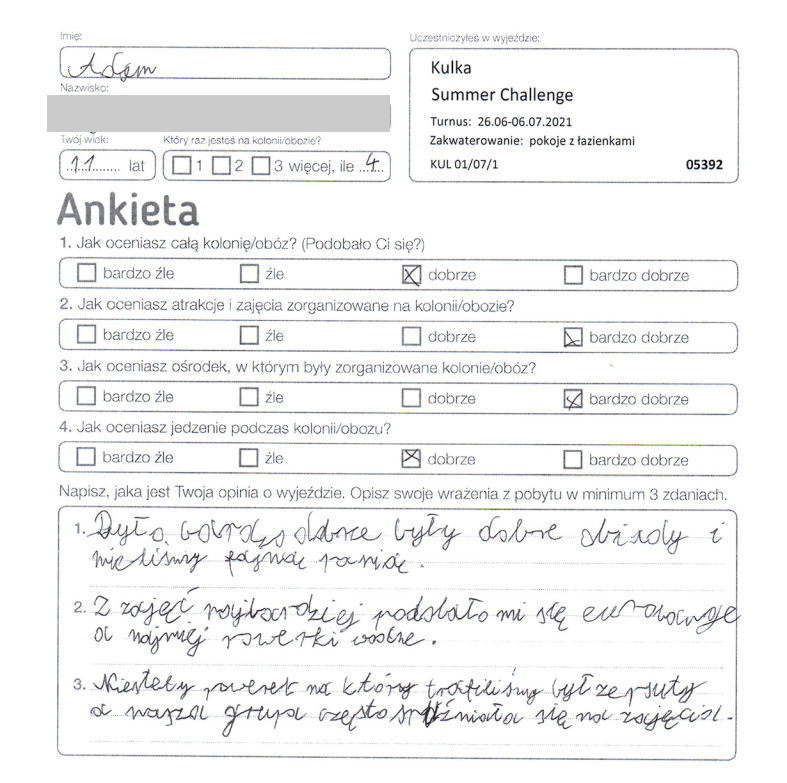 Imię:
Uczestniczyłeś w wyjeździe:
Adam
Kulka
Nazwisko:
Summer Challenge
Turnus: 26.06-06.07.2021
Twój wiek: Który raz jesteś na kolonii/obozie?
Zakwaterowanie: pokoje z łazienkami
11 lat 1 2 3 więcej, ile 4
KUL 01/07/1 05392
Ankieta
1. Jak oceniasz całą kolonię/obóz? (Podobało Ci się?)
bardzo źle źle dobrze bardzo dobrze
2. Jak oceniasz atrakcje i zajęcia zorganizowane na kolonii/obozie?
bardzo źle źle dobrze bardzo dobrze
3. Jak oceniasz ośrodek, w którym były zorganizowane kolonie/obóz?
bardzo źle źle dobrze bardzo dobrze
4. Jak oceniasz jedzenie podczas kolonii/obozu?
bardzo źle źle dobrze bardzo dobrze
Napisz, jaka jest Twoja opinia o wyjeździe. Opisz swoje wrażenia z pobytu w minimum 3 zdaniach.
1. Było bardzo dobrze były dobre obiady i
mieliśmy fajną panią.
2. Z zajęć najbardziej podobało mi się
a najmniej rowerki wodne.
3. Niestety rowerek na który trafiliśmy był zepsuty
a nasza grupa często spóźniała się na zajęcia.